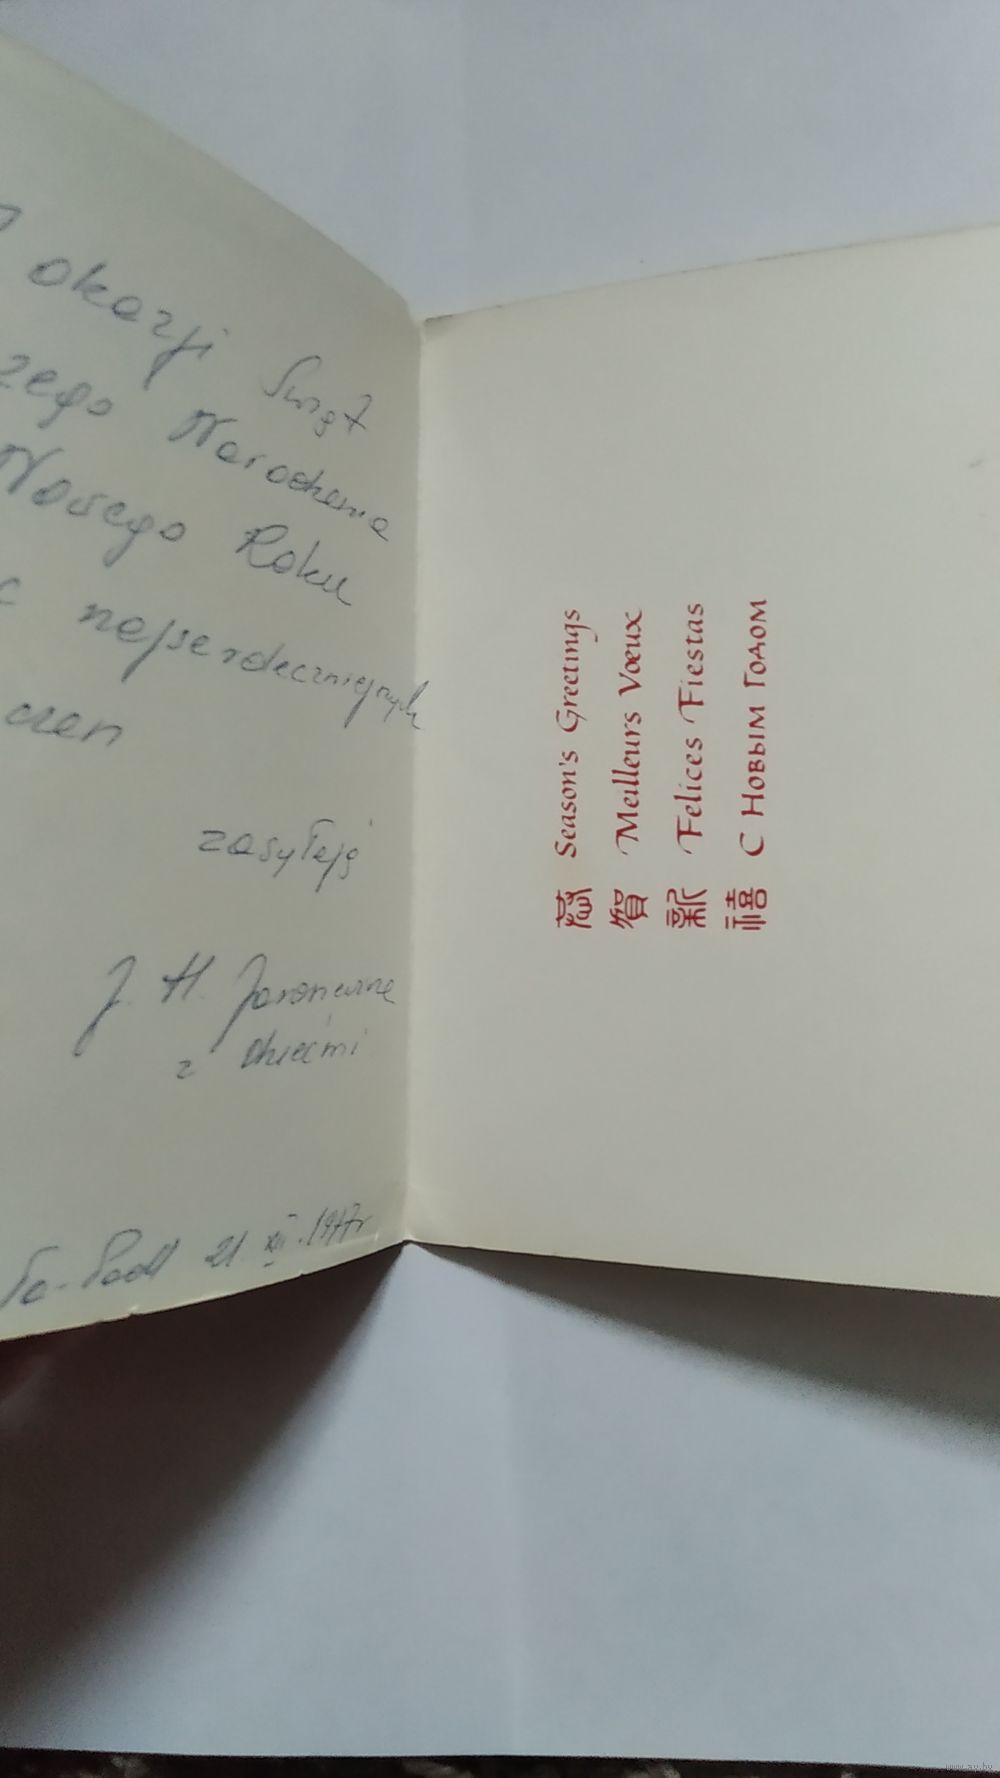 okazji Świąt
zego Narodzenia
Nowego Roku
najserdeczniejszych
czeń
zasyłają
J. H.
z dziećmi
21. XII. 1977r
Season's Greetings
Meilleurs Vœux
Felices Fiestas
С Новым Годом
恭
賀
新
禧
www.ay.by